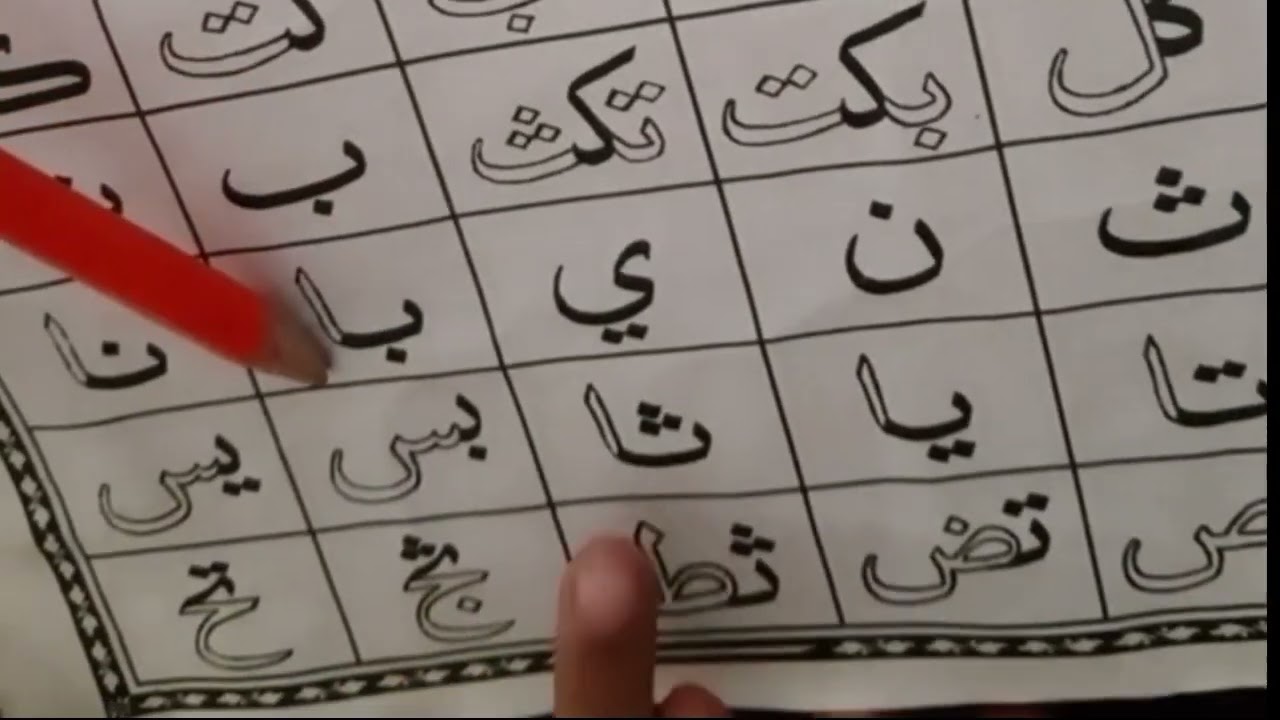 كت
كل بكت تكث ب
ث ن ي با نا
تا يا ثا بس يس
تض ثط ثج تح